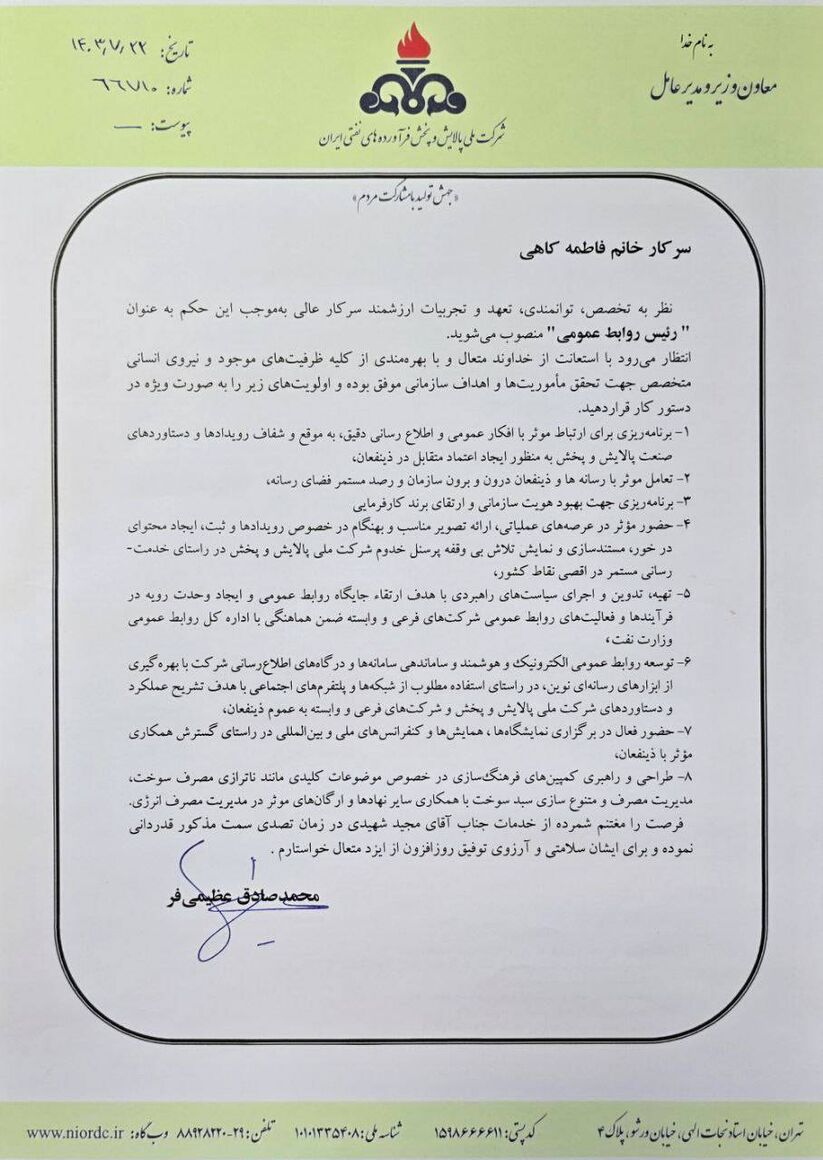 به نام خدا
معاون وزیر و مدیرعامل
شرکت ملی پالایش و پخش فرآورده های نفتی ایران
تاریخ: ۱۴۰۳/۷/۲۲
شماره: ۶۶۷۱۰
پیوست: —
«جهش تولید با مشارکت مردم»
سرکار خانم فاطمه کاهی
نظر به تخصص، توانمندی، تعهد و تجربیات ارزشمند سرکار عالی به‌موجب این حکم به عنوان
" رئیس روابط عمومی" منصوب می‌شوید.
انتظار می‌رود با استعانت از خداوند متعال و با بهره‌مندی از کلیه ظرفیت‌های موجود و نیروی انسانی
متخصص جهت تحقق مأموریت‌ها و اهداف سازمانی موفق بوده و اولویت‌های زیر را به صورت ویژه در
دستور کار قراردهید.
۱- برنامه‌ریزی برای ارتباط موثر با افکار عمومی و اطلاع رسانی دقیق، به موقع و شفاف رویدادها و دستاوردهای
صنعت پالایش و پخش به منظور ایجاد اعتماد متقابل در ذینفعان،
۲- تعامل موثر با رسانه ها و ذینفعان درون و برون سازمان و رصد مستمر فضای رسانه،
۳- برنامه‌ریزی جهت بهبود هویت سازمانی و ارتقای برند کارفرمایی
۴- حضور مؤثر در عرصه‌های عملیاتی، ارائه تصویر مناسب و بهنگام در خصوص رویدادها و ثبت، ایجاد محتوای
در خور، مستندسازی و نمایش تلاش بی وقفه پرسنل خدوم شرکت ملی پالایش و پخش در راستای خدمت-
رسانی مستمر در اقصی نقاط کشور،
۵- تهیه، تدوین و اجرای سیاست‌های راهبردی با هدف ارتقاء جایگاه روابط عمومی و ایجاد وحدت رویه در
فرآیندها و فعالیت‌های روابط عمومی شرکت‌های فرعی و وابسته ضمن هماهنگی با اداره کل روابط عمومی
وزارت نفت،
۶- توسعه روابط عمومی الکترونیک و هوشمند و ساماندهی سامانه‌ها و درگاه‌های اطلاع‌رسانی شرکت با بهره‌گیری
از ابزارهای رسانه‌ای نوین، در راستای استفاده مطلوب از شبکه‌ها و پلتفرم‌های اجتماعی با هدف تشریح عملکرد
و دستاوردهای شرکت ملی پالایش و پخش و شرکت‌های فرعی و وابسته به عموم ذینفعان،
۷- حضور فعال در برگزاری نمایشگاه‌ها ، همایش‌ها و کنفرانس‌های ملی و بین‌المللی در راستای گسترش همکاری
مؤثر با ذینفعان،
۸- طراحی و راهبری کمپین‌های فرهنگ‌سازی در خصوص موضوعات کلیدی مانند ناترازی مصرف سوخت،
مدیریت مصرف و متنوع سازی سبد سوخت با همکاری سایر نهادها و ارگان‌های موثر در مدیریت مصرف انرژی.
فرصت را مغتنم شمرده از خدمات جناب آقای مجید شهیدی در زمان تصدی سمت مذکور قدردانی
نموده و برای ایشان سلامتی و آرزوی توفیق روزافزون از ایزد متعال خواستارم .
محمدصادق عظیمی‌فر
تهران، خیابان استاد نجات الهی، خیابان ورشو، پلاک ۴ کدپستی: ۱۵۹۸۶۶۶۶۱۱ شناسه ملی: ۱۰۱۰۱۳۳۵۴۰۸ تلفن: ۲۹-۸۸۹۲۸۲۲۰ وب‌گاه: www.niordc.ir